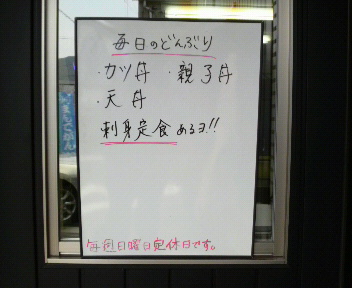 毎日のどんぶり
・カツ丼 ・親子丼
・天丼
刺身定食あるヨ!!
毎週日曜日定休日です。